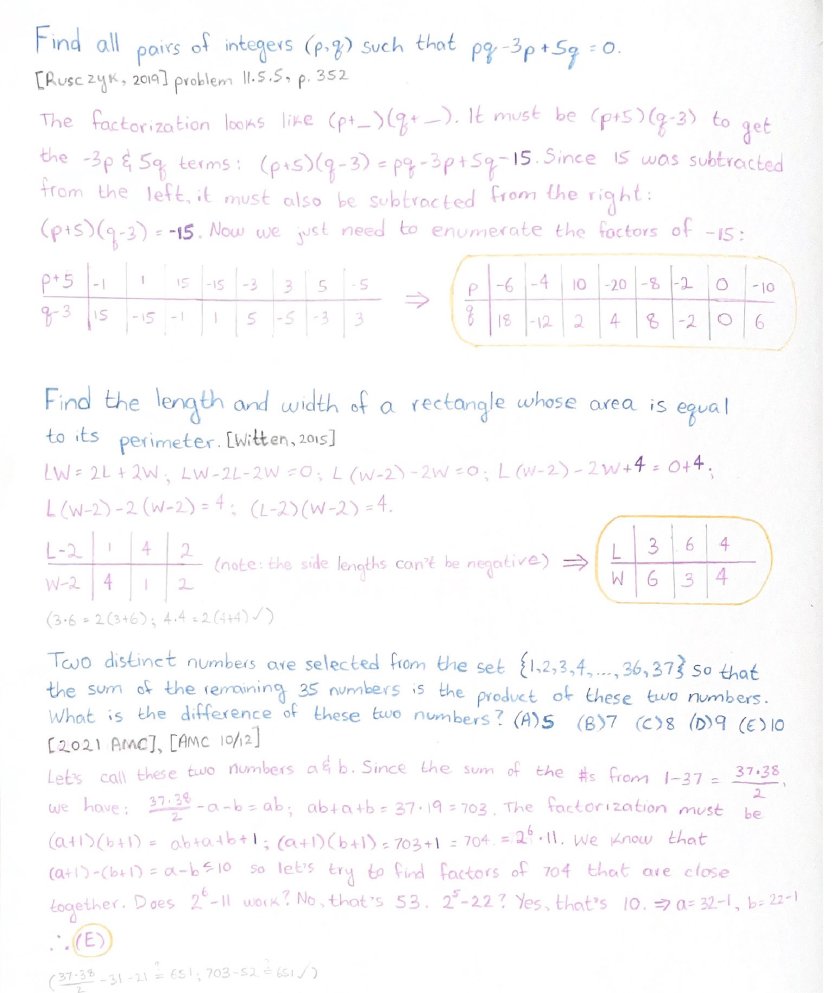 Find all pairs of integers (p,q) such that pq-3p+5q=0.
[Rusczyk, 2019] problem 11.5.5, p. 352
The factorization looks like (p+_)(q+_). It must be (p+5)(q-3) to get
the -3p & 5q terms: (p+5)(q-3) = pq-3p+5q-15. Since 15 was subtracted
from the left, it must also be subtracted from the right:
(p+5)(q-3) = -15. Now we just need to enumerate the factors of -15:
p+5 | -1 | 1 | 15 | -15 | -3 | 3 | 5 | -5 ⇒ p | -6 | -4 | 10 | -20 | -8 | -2 | 0 | -10
q-3 | 15 | -15 | -1 | 1 | 5 | -5 | -3 | 3 q | 18 | -12 | 2 | 4 | 8 | -2 | 0 | 6
Find the length and width of a rectangle whose area is equal
to its perimeter. [Witten, 2015]
LW = 2L + 2W; LW-2L-2W=0; L(W-2)-2W=0; L(W-2)-2W+4 = 0+4;
L(W-2)-2(W-2)=4; (L-2)(W-2)=4.
L-2 | 1 | 4 | 2 (note: the side lengths can't be negative) ⇒ L | 3 | 6 | 4
W-2 | 4 | 1 | 2 W | 6 | 3 | 4
(3·6 = 2(3+6); 4·4 = 2(4+4) ✓)
Two distinct numbers are selected from the set {1,2,3,4,...,36,37} so that
the sum of the remaining 35 numbers is the product of these two numbers.
What is the difference of these two numbers? (A)5 (B)7 (C)8 (D)9 (E)10
[2021 AMC], [AMC 10/12]
Let's call these two numbers a & b. Since the sum of the #s from 1-37 = 37·38/2,
we have: 37·38/2 -a-b=ab; ab+a+b = 37·19 = 703. The factorization must be
(a+1)(b+1) = ab+a+b+1; (a+1)(b+1) = 703+1 = 704 = 2^6·11. We know that
(a+1)-(b+1) = a-b≤10 so let's try to find factors of 704 that are close
together. Does 2^6-11 work? No, that's 53. 2^5-22? Yes, that's 10. ⇒ a=32-1, b=22-1
∴ (E)
(37·38/2 -31-21 ≟ 651; 703-52 ≟ 651 ✓)